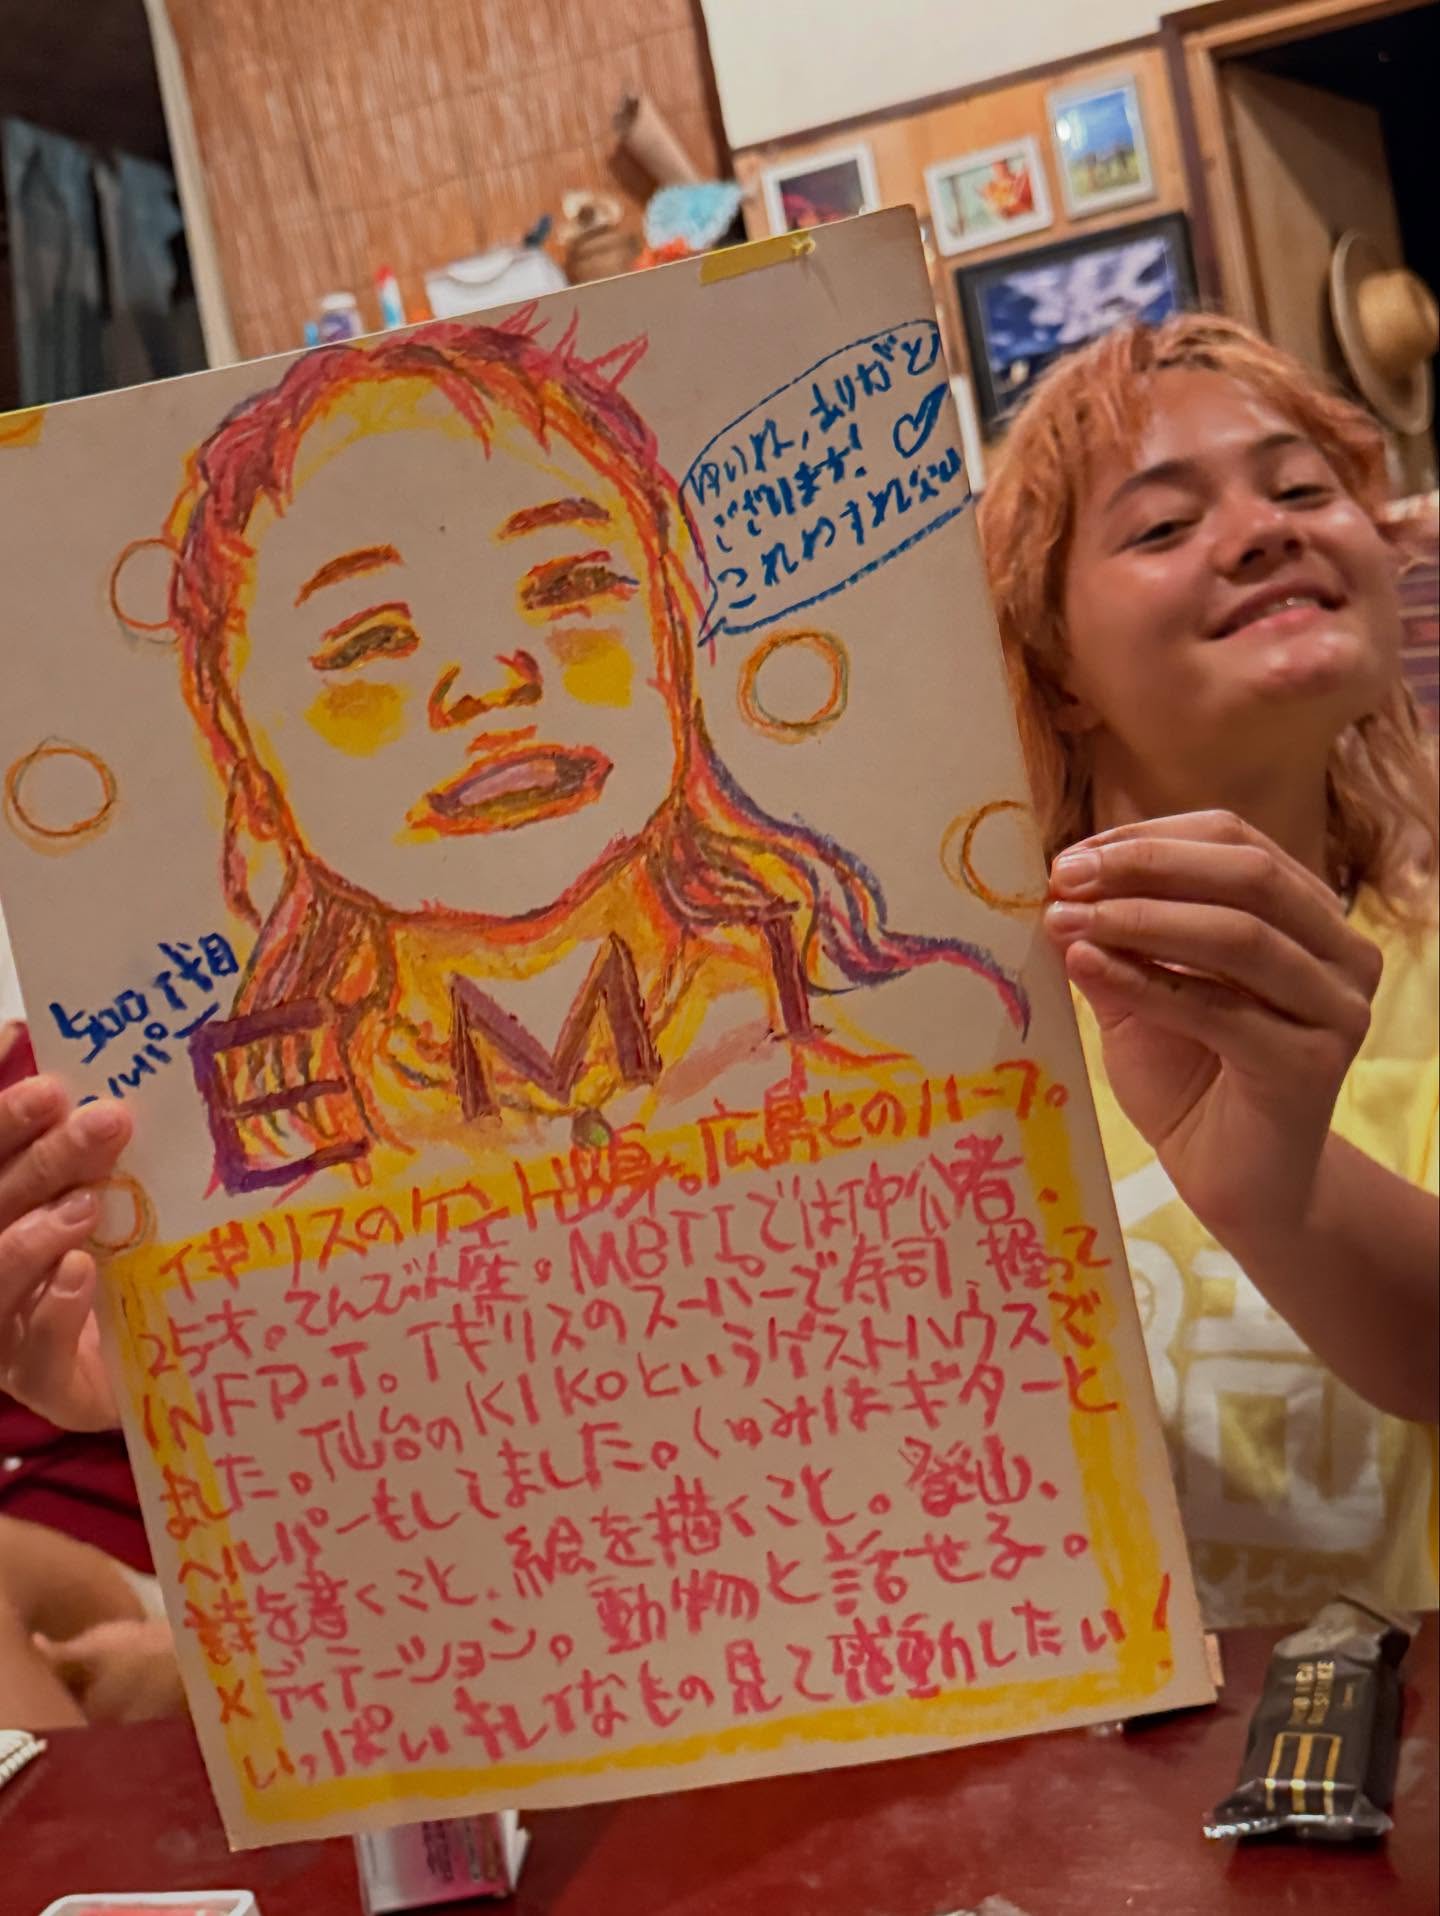 ゆいねー、ありがと
ございます！
これわすれない
500代目
ヘルパー
EMI
イギリスのケント出身。広島とのハーフ。
25才。てんびん座。MBTIでは仲介者、
INFP-T。イギリスのスーパーで寿司握って
ました。仙台のKIKOというゲストハウスで
ヘルパーもしてました。しゅみはギターと
詩を書くこと、絵を描くこと。登山、
メディテーション。動物と話せる。
いっぱいキレイなもの見て感動したい！